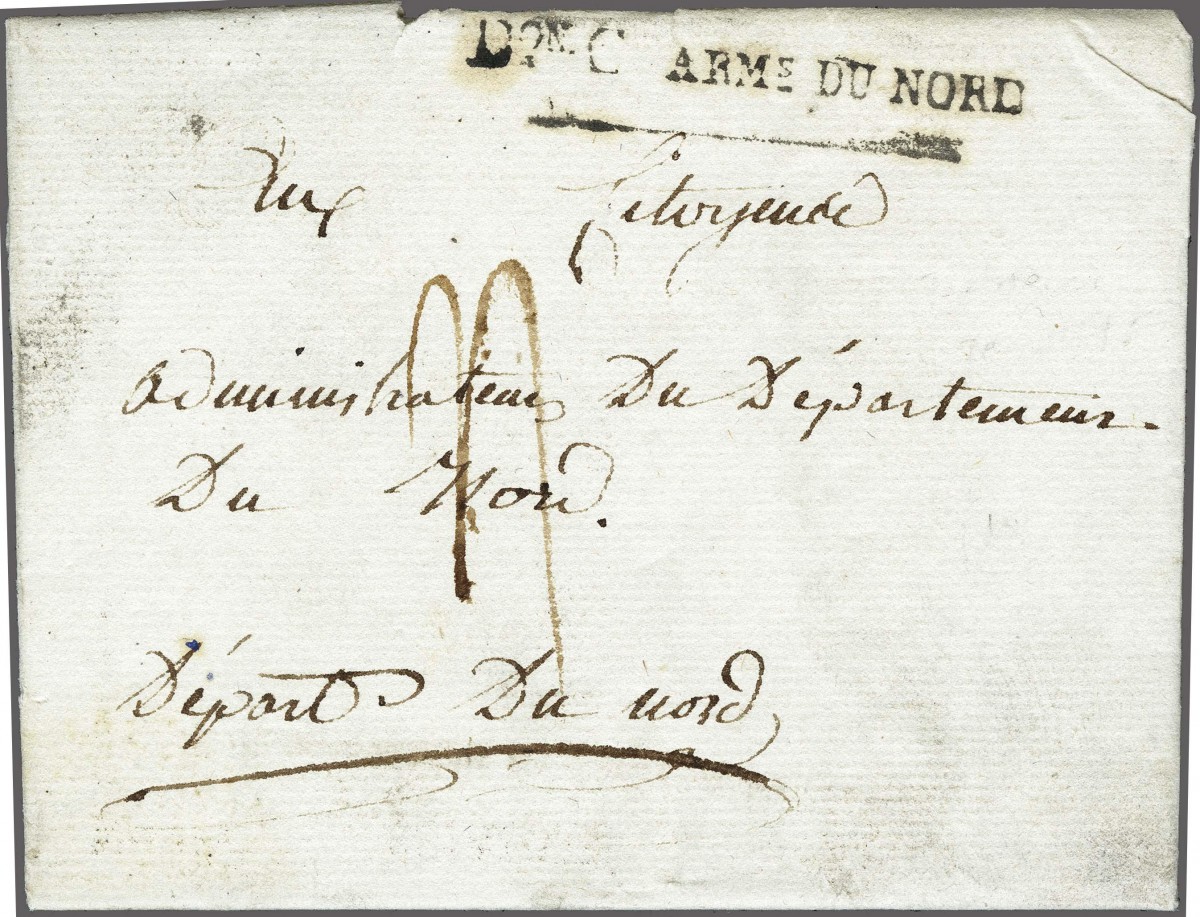 Don. C ARMs DU NORD
Aux Citoyens
administrateurs Du Département
Du Nord.
Départ Du nord